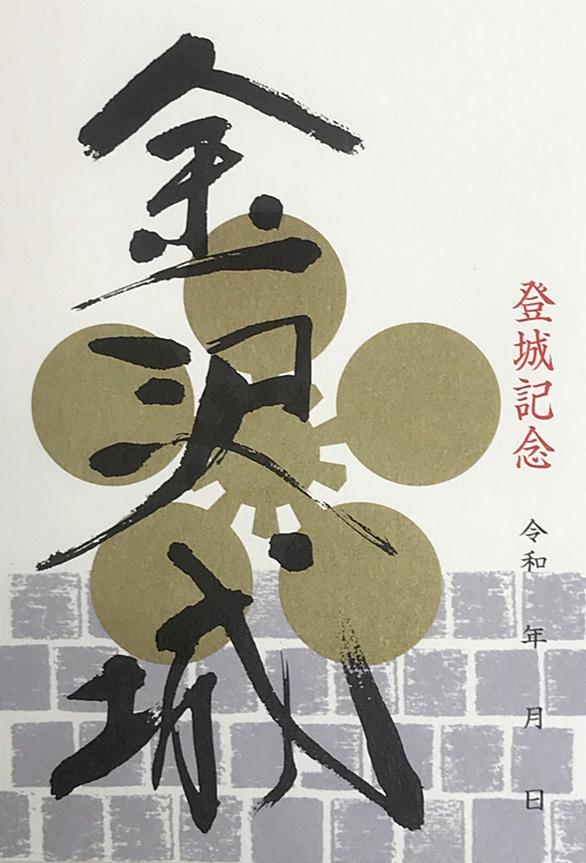 登城記念
令和 年 月 日
金沢城